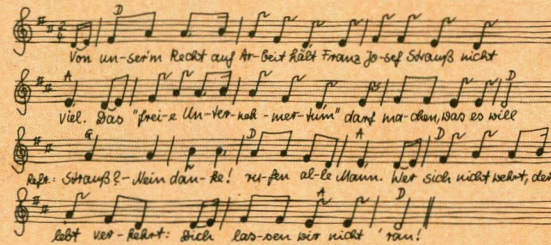 D
Von un-ser'm Recht auf Ar-beit hält Franz Jo-sef Strauß nicht
A D
viel. Das "frei-e Un-ter-neh-mer-tum" darf ma-chen, was es will
G D A D
Refr.: Strauß? - Nein dan-ke! ru-fen al-le Mann. Wer sich nicht wehrt, der
A D
lebt ver-kehrt: Dich las-sen wir nicht 'ran!